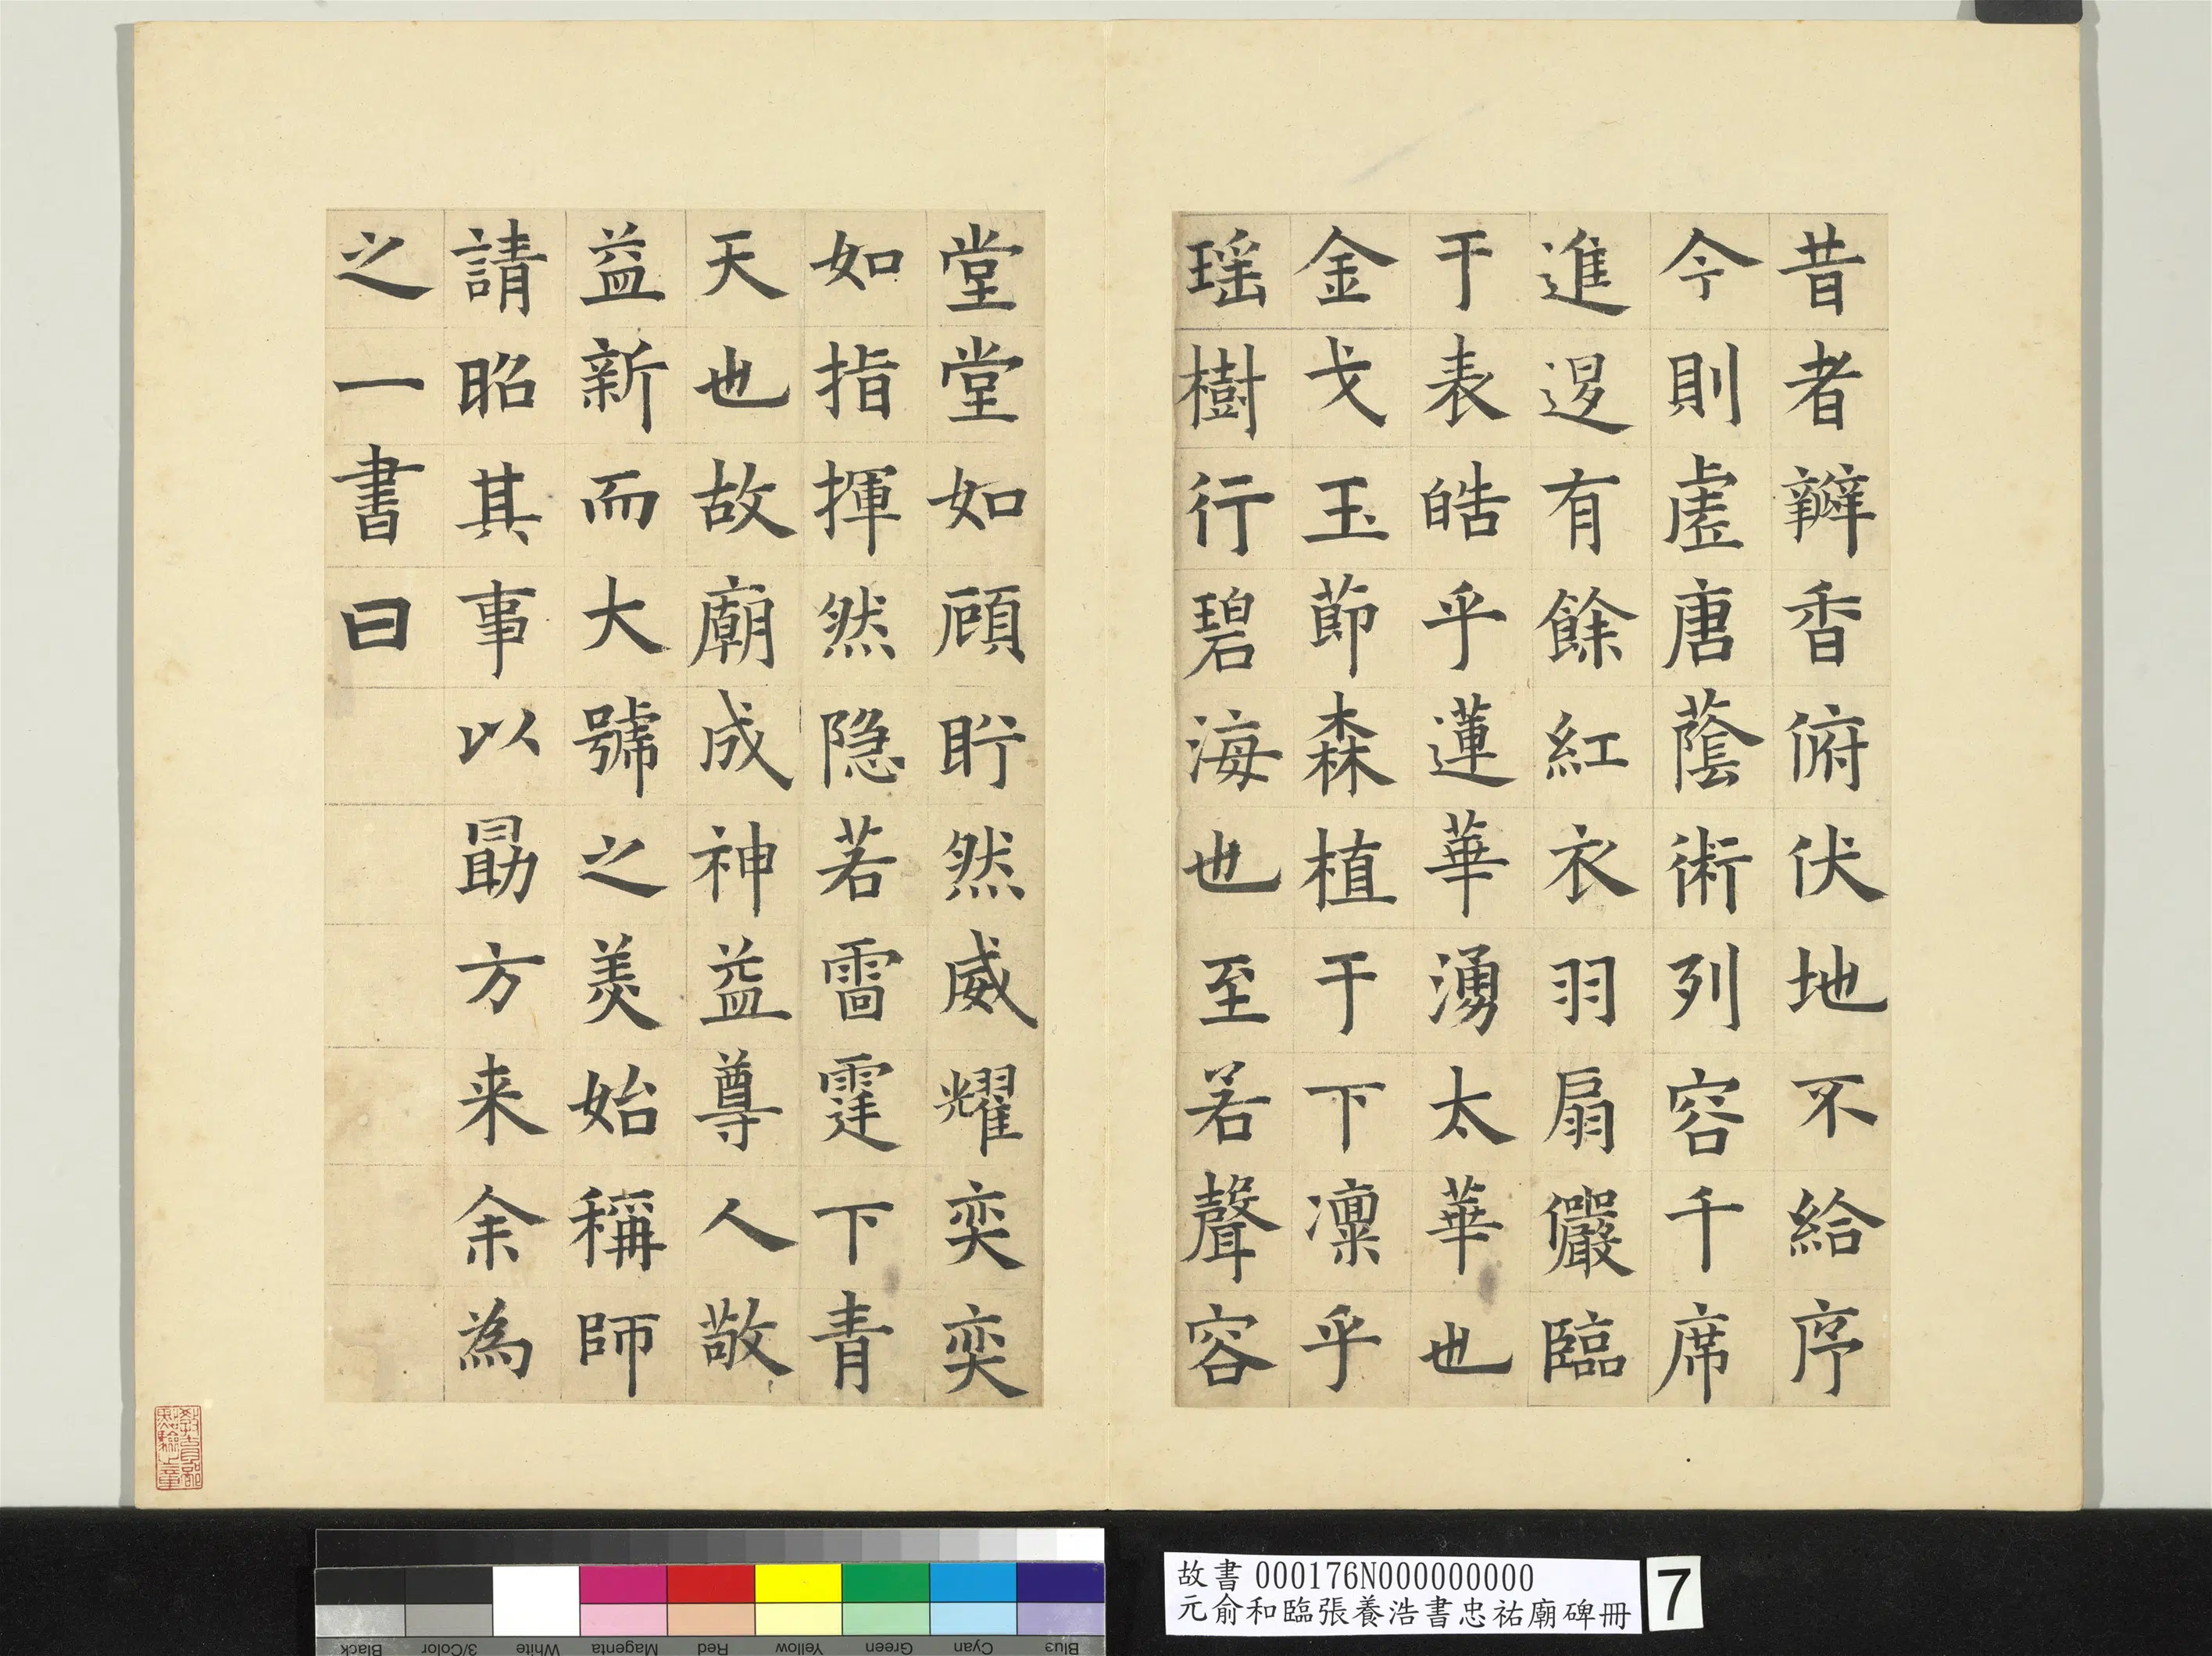 昔者辮香俯伏地不給序
今則虛唐蔭術列容千席
進退有餘紅衣羽扇儼臨
于表皓乎蓮華湧太華也
金戈玉節森植于下凜乎
瑶樹行碧海也至若聲容
堂堂如顧盻然威耀奕奕
如指揮然隐若雷霆下青
天也故廟成神益尊人敬
益新而大號之美始稱師
請昭其事以勗方来余為
之一書曰
故書 000176N000000000
元俞和臨張養浩書忠祐廟碑冊
7
Black
3/Color
White
Magenta
Red
Yellow
Green
Cyan
Blue